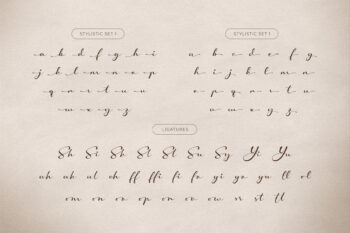 STYLISTIC SET 1
a b d f g h i
j k l m n o p
q a r t u v
w x y z
STYLISTIC SET 1
a b c d e f g
h i j k l m n a
p q r s t u
v w x y z
LIGATURES
Sh Si Sk Sl St Su Sy Yi Yu
ah ak ul ch ff ffi fi fo yi yo yu ll ol
om on oo op on ow is st tl